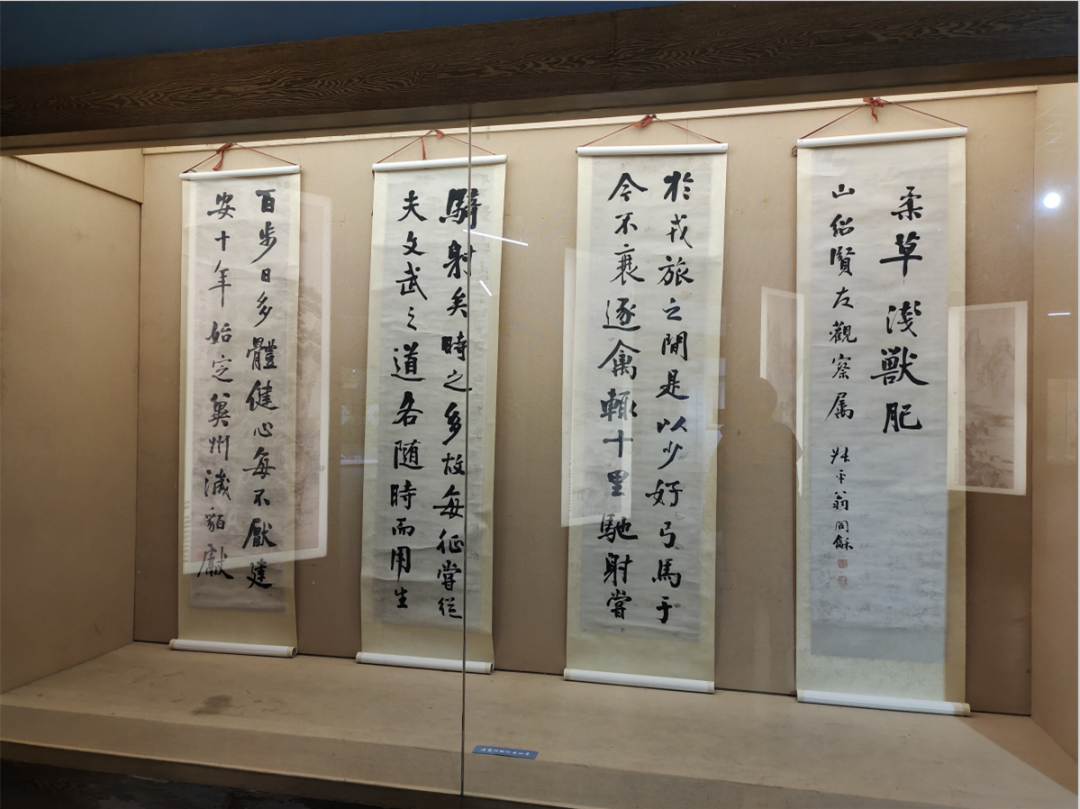 柔草淺獸肥
山賢左觀察属
叔平翁同龢
於戎旅之間是以少好弓馬于
今不衰逐禽輒十里馳射嘗
騎射矣時之多故每征嘗從
夫文武之道各隨時而用生
百步日多體健心每不厭建
安十年始定冀州濊貊獻